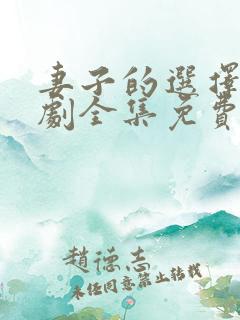 妻子的選擇
劇全集免費
趙德志
未經同意禁止轉載